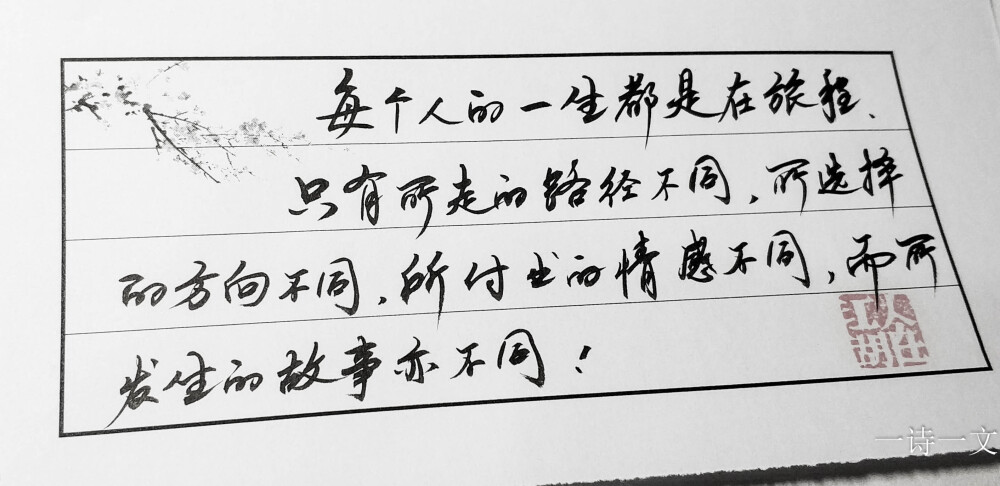 每个人的一生都是在旅程.
只有所走的路径不同,所选择
的方向不同,所付出的情感不同,而所
发生的故事亦不同!
一诗一文